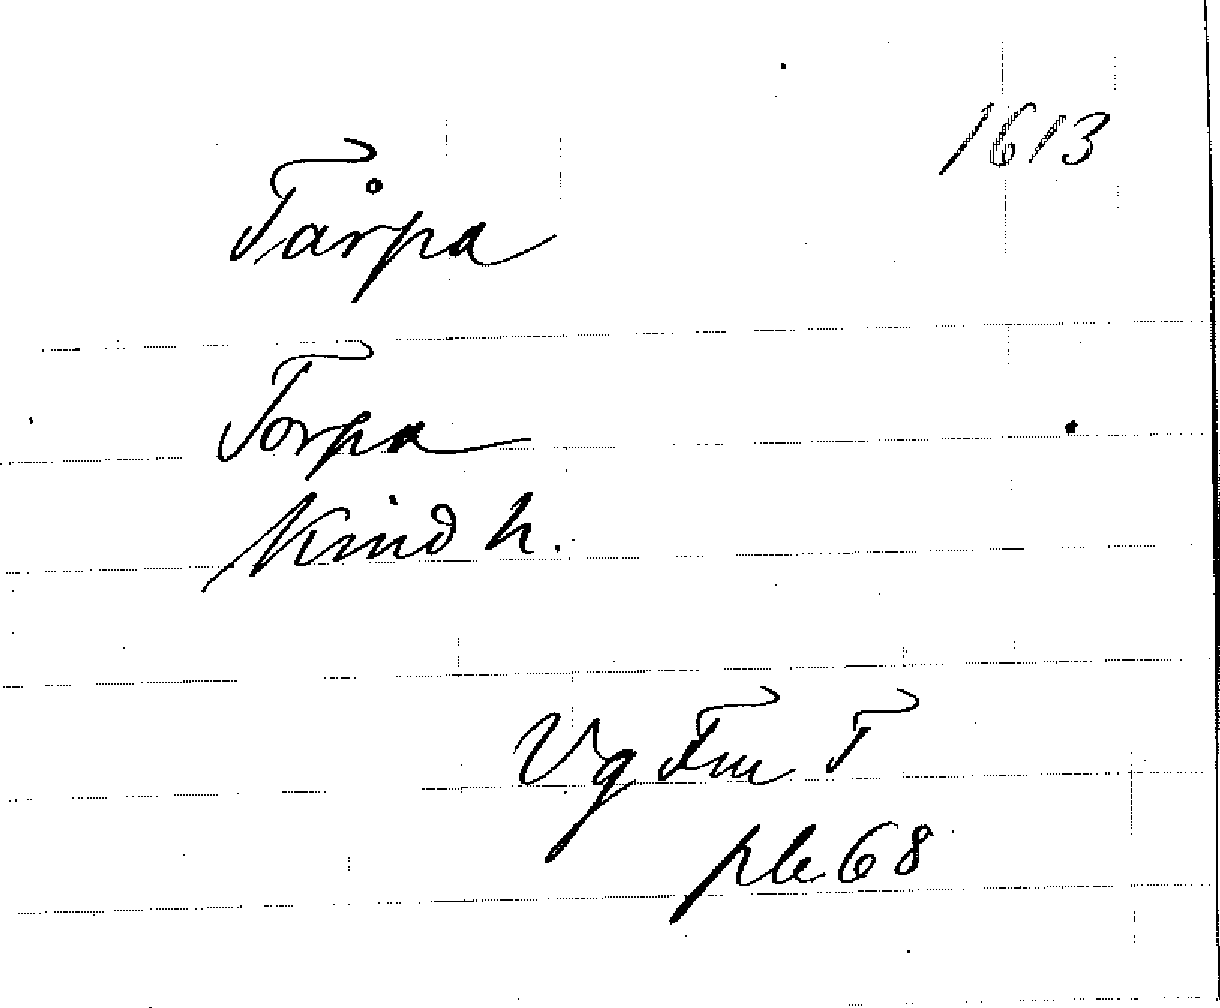 1613
Tårpa
Torpa
Kind h.
Vg Fm T
ple 68